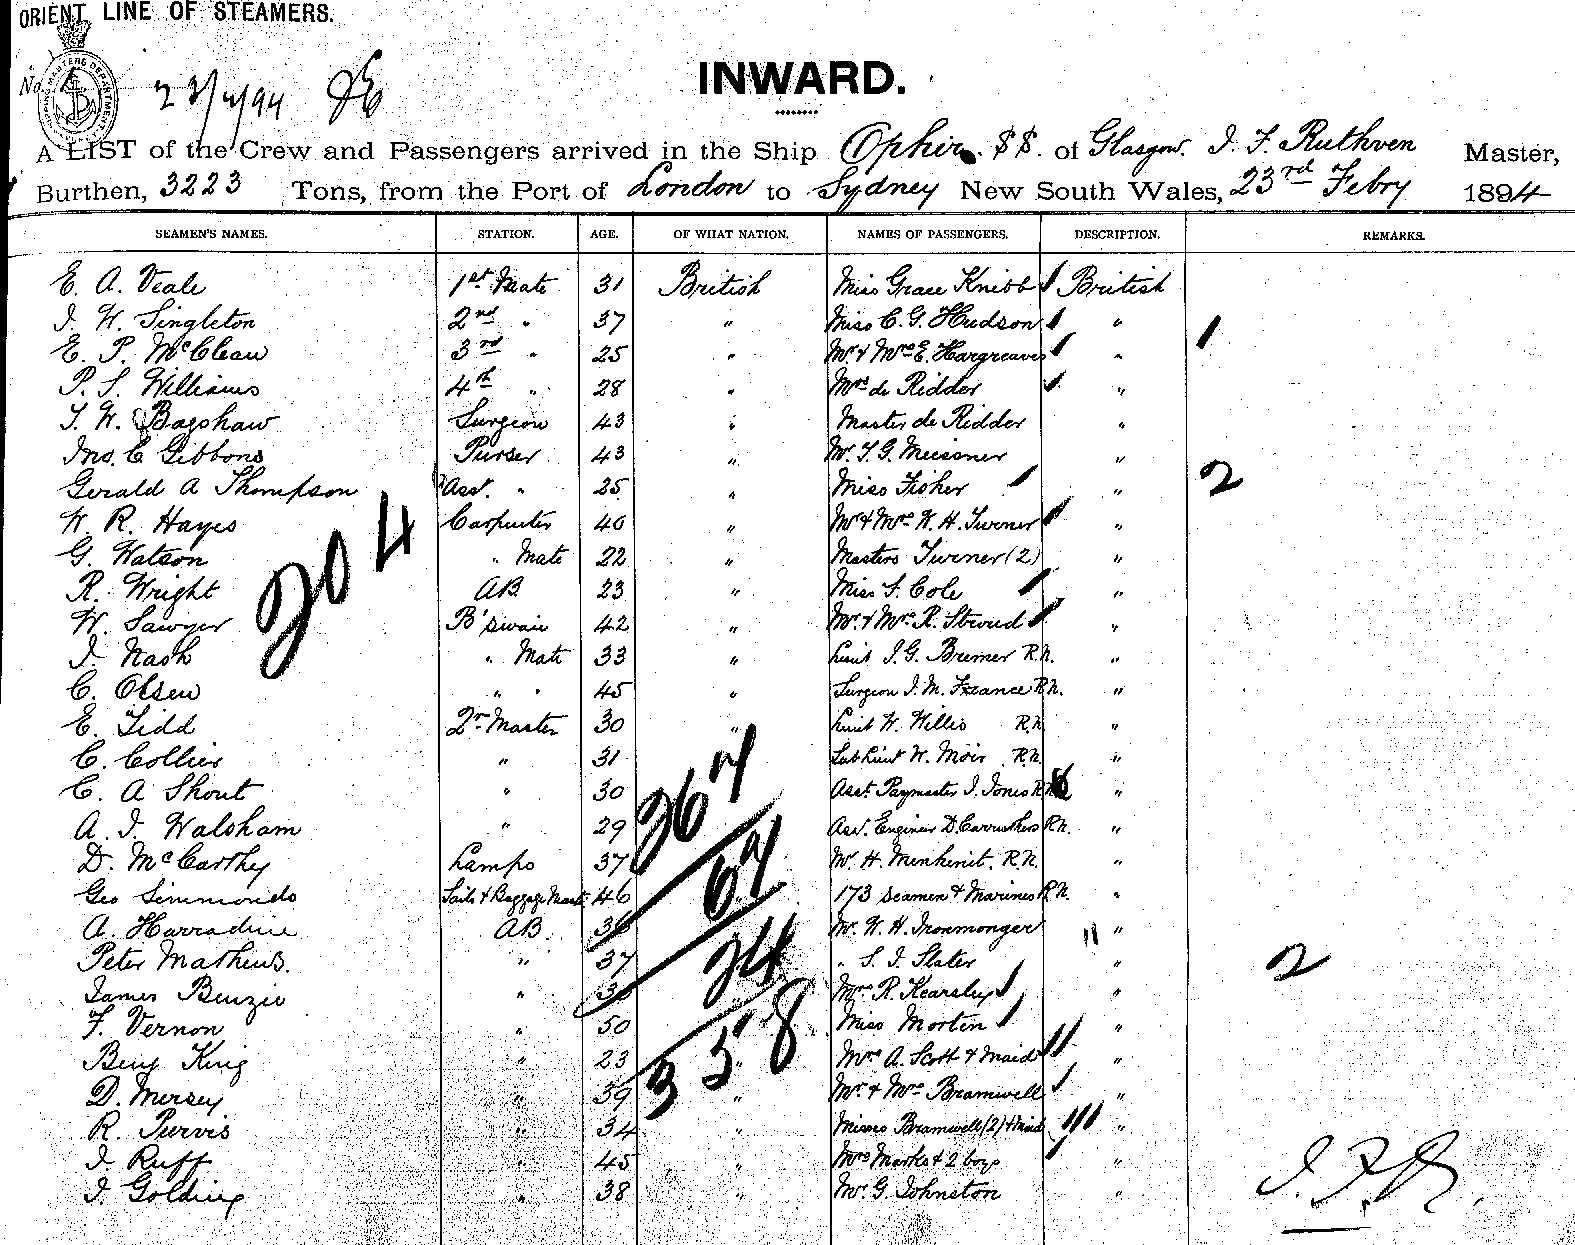 ORIENT LINE OF STEAMERS.
No.
INWARD.
A LIST of the Crew and Passengers arrived in the Ship Ophir SS. of Glasgow. J. F. Ruthven Master,
Burthen, 3223 Tons, from the Port of London to Sydney New South Wales, 23rd Febry 1894
SEAMEN'S NAMES. STATION. AGE. OF WHAT NATION. NAMES OF PASSENGERS. DESCRIPTION. REMARKS.
E. A. Veale 1st Mate 31 British Miss Grace Knibb British
J. W. Singleton 2nd " 37 " Miss C. G. Hudson " 1
E. P. McClean 3rd " 25 " Mr & Mrs E. Hargreaves "
P. S. Williams 4th " 28 " Mrs de Ridder "
T. W. Bagshaw Surgeon 43 " Master de Ridder "
Jno. C Gibbons Purser 43 " Mr. T. G. Meissner "
Gerald A Thompson Asst. " 25 " Miss Fisher " 2
W. R. Hayes Carpenter 40 " Mr & Mrs W. H. Turner "
G. Watson " Mate 22 " Masters Turner (2) "
R. Wright AB 23 " Miss S. Cole "
W. Sawyer B'swain 42 " Mr. & Mrs. R. Stroud "
J. Nash " Mate 33 " Lieut J. G. Bremer R.N. "
C. Olsen " " 45 " Surgeon J. M. France R.N. "
E. Tidd 2r Master 30 " Lieut W. Willis R.N. "
C. Collier " 31 Sub Lieut W. Moir R.N. "
C. A Shout " 30 Asst. Paymaster J. Jones R.N. "
A. J. Walsham " 29 Asst. Engineer D. Carruthers R.N. "
D. McCarthy Lamps 37 Mr. H. Minhinit. R.N. "
Geo Simmonds Sails & Baggage Mast 46 173 Seamen & Marines R.N. "
A. Harradine AB 36 Mr. W. H. Ironmonger "
Peter Mathews. " 37 " S. J. Slater " 2
James Benzie " Mrs R. Kearsley "
F. Vernon " 50 Miss Morten "
Benj King " 23 " Mrs A. Scott & Maid "
D. Mersey " 39 " Mr. & Mrs Bramwell "
R. Purvis " 34 " Misses Bramwell (2) & Maid "
J. Ruff " 45 " Mrs Marks & 2 boys "
J. Golding " 38 " Mr. G. Johnston "
204
267
67
24
358
J. F. R.